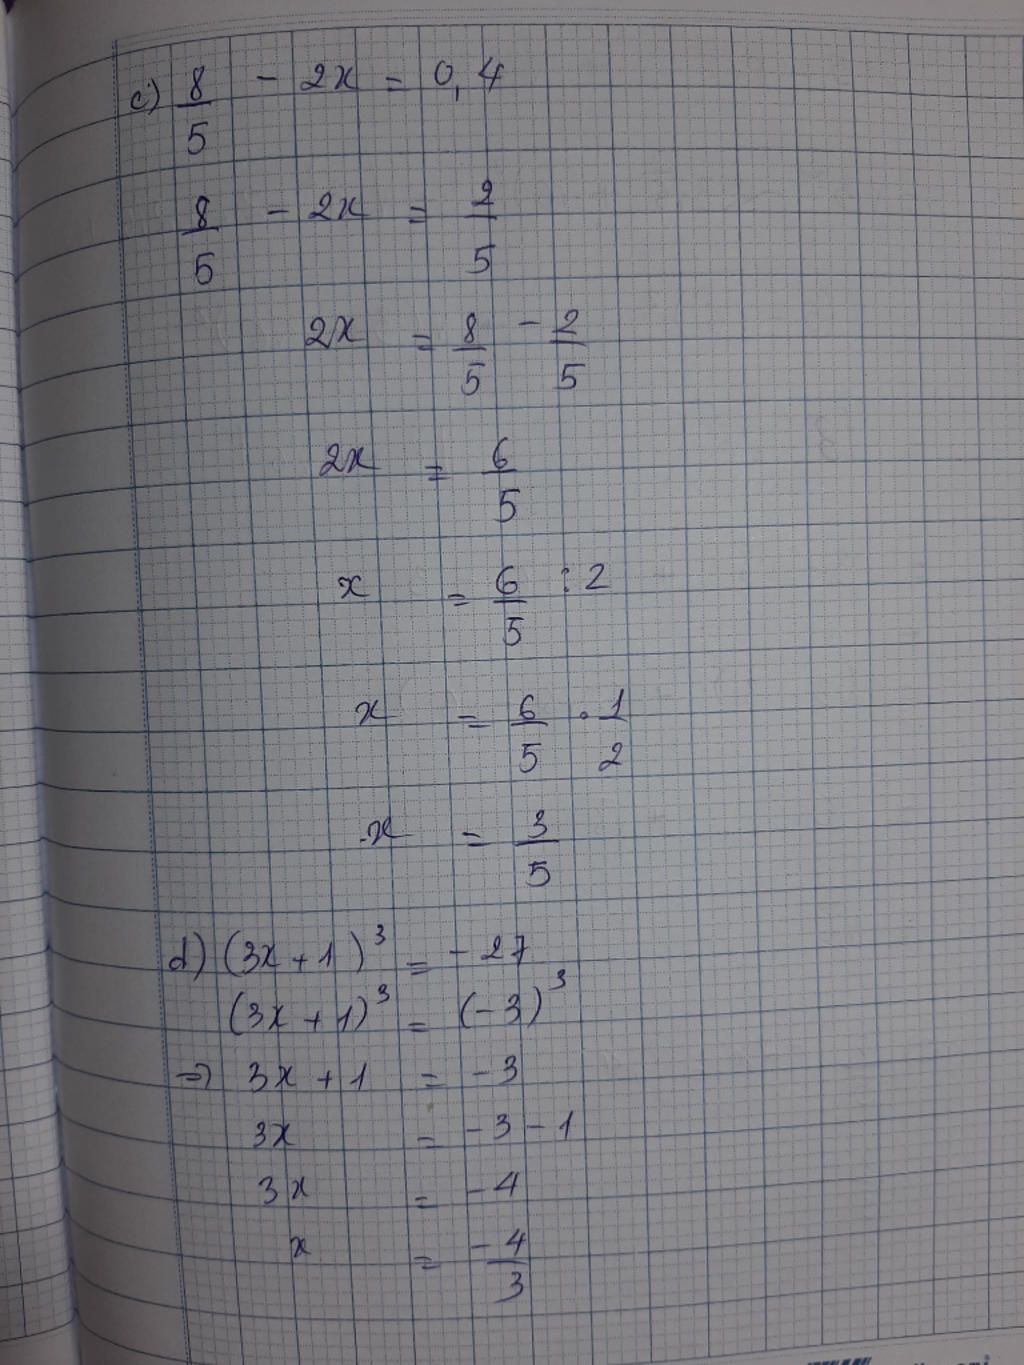 c) 8/5 - 2x = 0,4
8/5 - 2x = 2/5
2x = 8/5 - 2/5
2x = 6/5
x = 6/5 : 2
x = 6/5 . 1/2
x = 3/5
d) (3x + 1)³ = - 27
(3x + 1)³ = (- 3)³
=> 3x + 1 = - 3
3x = - 3 - 1
3x = - 4
x = - 4/3